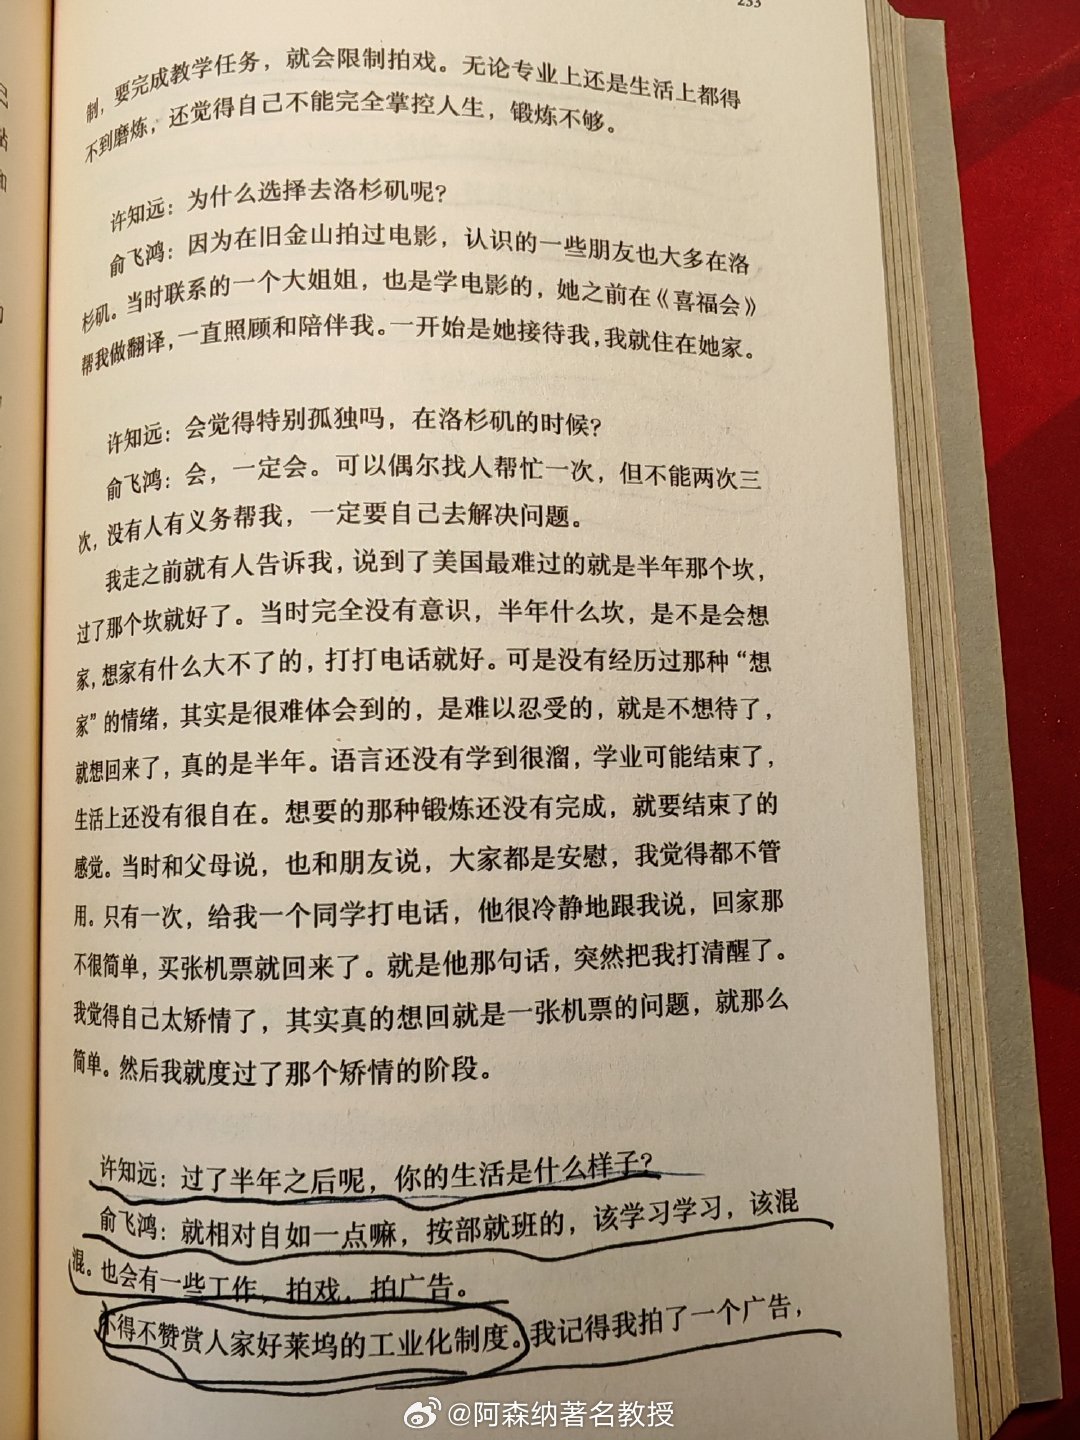 233
制，要完成教学任务，就会限制拍戏。无论专业上还是生活上都得
不到磨炼，还觉得自己不能完全掌控人生，锻炼不够。
许知远：为什么选择去洛杉矶呢？
俞飞鸿：因为在旧金山拍过电影，认识的一些朋友也大多在洛
杉矶。当时联系的一个大姐姐，也是学电影的，她之前在《喜福会》
帮我做翻译，一直照顾和陪伴我。一开始是她接待我，我就住在她家。
许知远：会觉得特别孤独吗，在洛杉矶的时候？
俞飞鸿：会，一定会。可以偶尔找人帮忙一次，但不能两次三
次，没有人有义务帮我，一定要自己去解决问题。
我走之前就有人告诉我，说到了美国最难过的就是半年那个坎，
过了那个坎就好了。当时完全没有意识，半年什么坎，是不是会想
家，想家有什么大不了的，打打电话就好。可是没有经历过那种“想
家”的情绪，其实是很难体会到的，是难以忍受的，就是不想待了，
就想回来了，真的是半年。语言还没有学到很溜，学业可能结束了，
生活上还没有很自在。想要的那种锻炼还没有完成，就要结束了的
感觉。当时和父母说，也和朋友说，大家都是安慰，我觉得都不管
用。只有一次，给我一个同学打电话，他很冷静地跟我说，回家那
不很简单，买张机票就回来了。就是他那句话，突然把我打清醒了。
我觉得自己太矫情了，其实真的想回就是一张机票的问题，就那么
简单。然后我就度过了那个矫情的阶段。
许知远：过了半年之后呢，你的生活是什么样子？
俞飞鸿：就相对自如一点嘛，按部就班的，该学习学习，该混
混。也会有一些工作，拍戏，拍广告。
不得不赞赏人家好莱坞的工业化制度。我记得我拍了一个广告，
@阿森纳著名教授